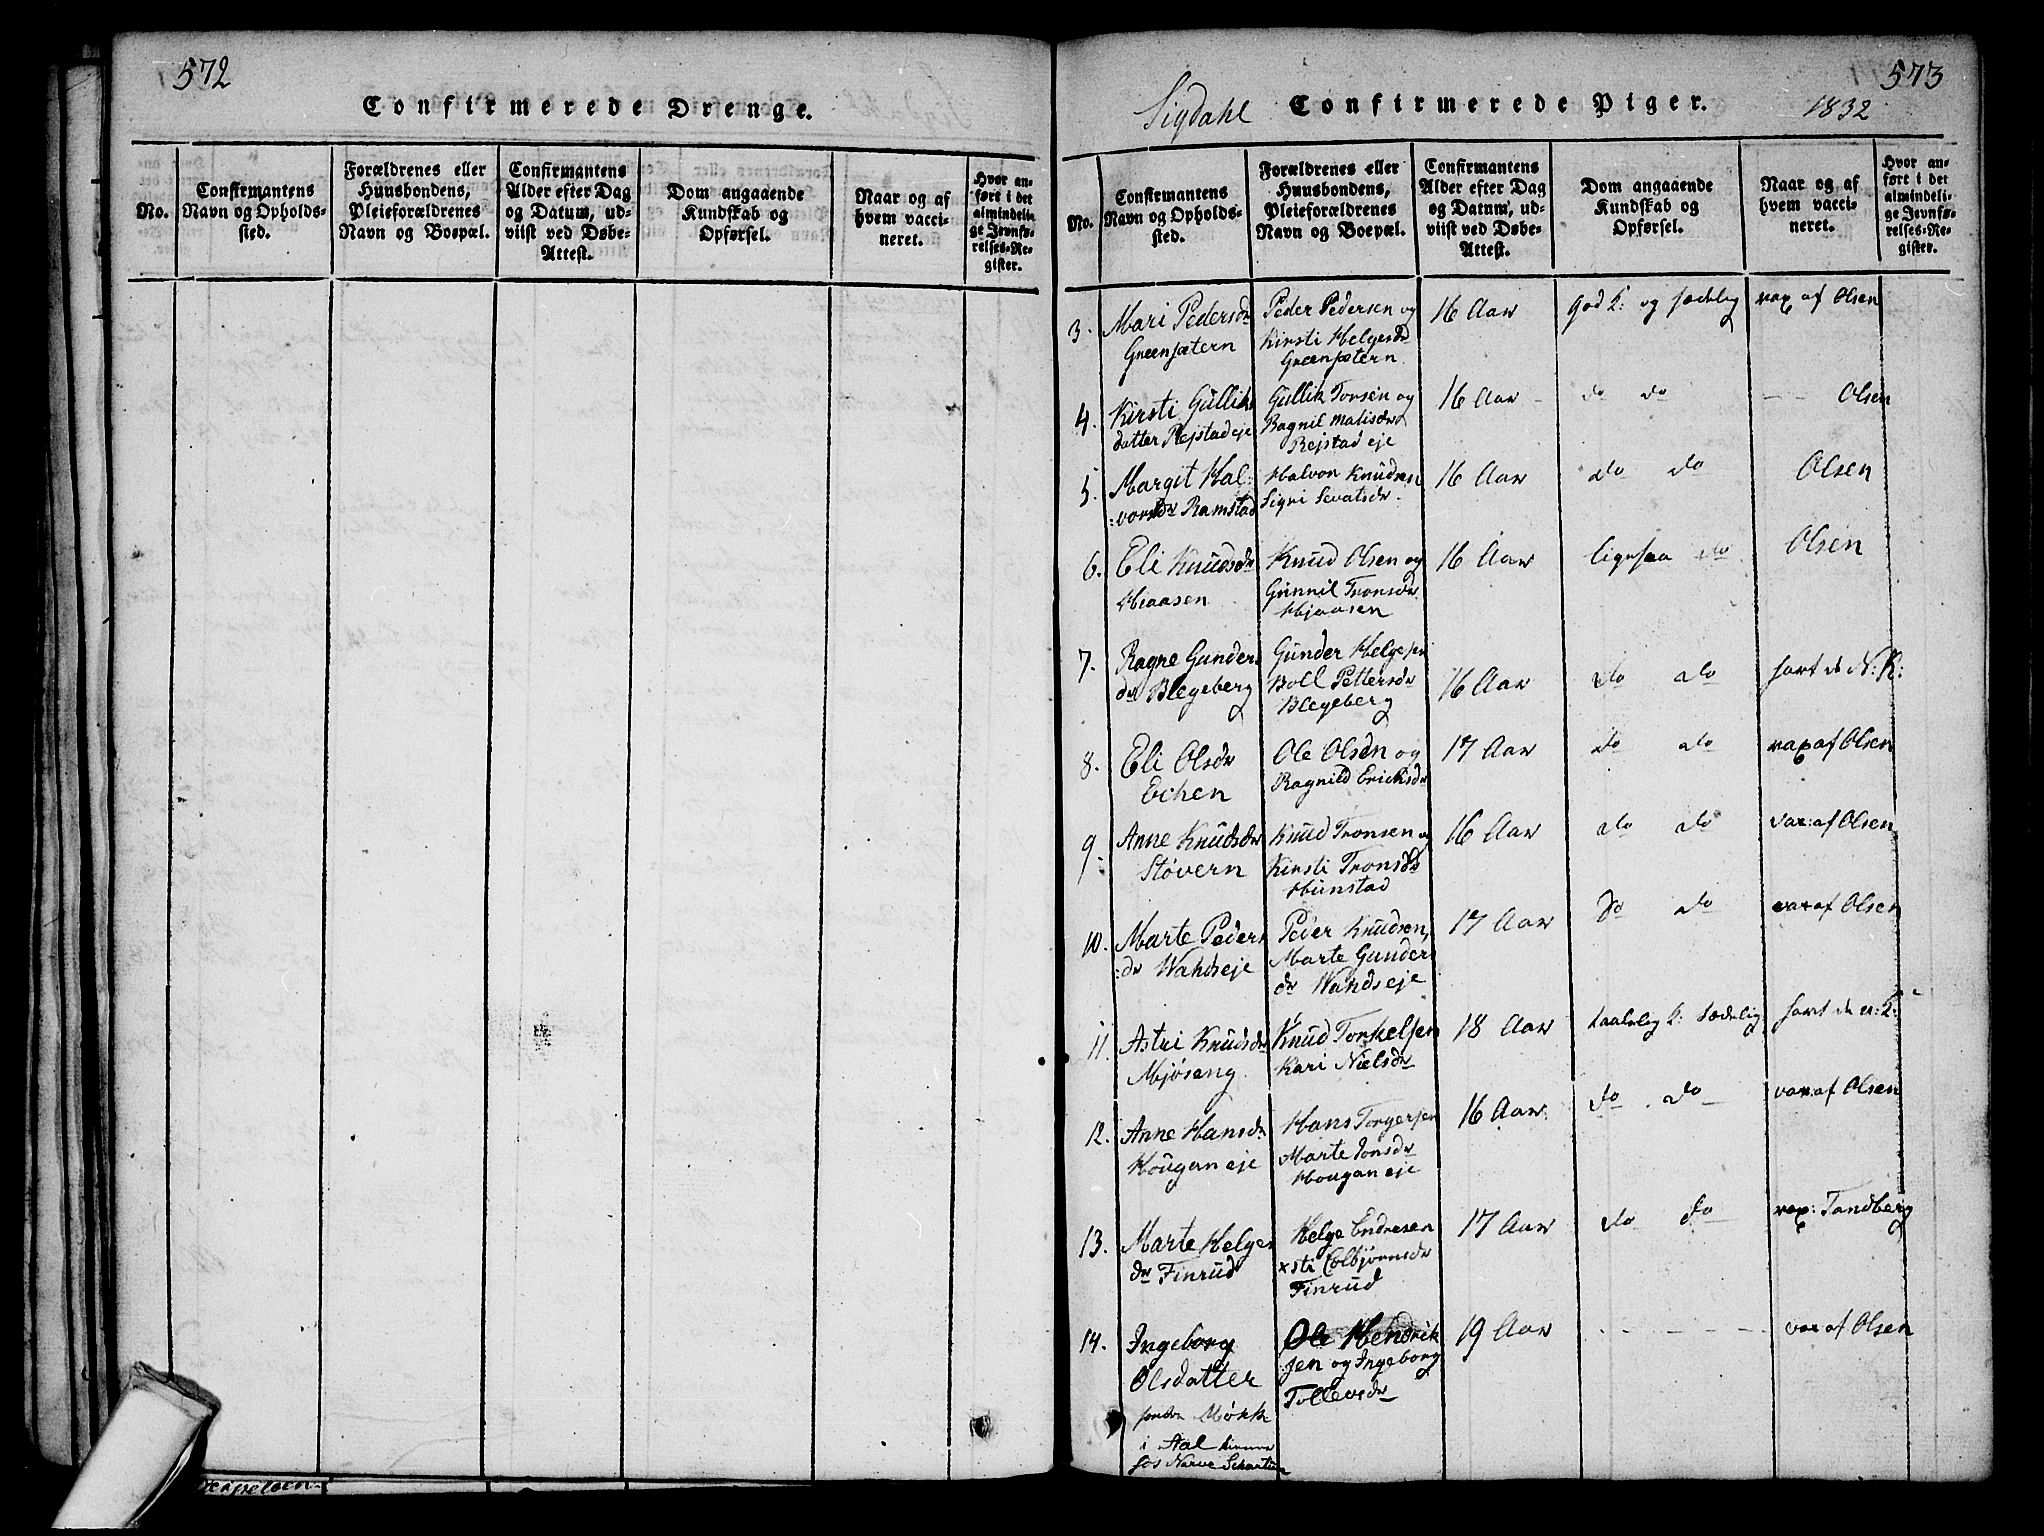 572
Confirmerede Drenge.
No.
Confirmantens
Navn og Opholds-
sted.
Forældrenes eller
Huusbondens,
Pleieforældrenes
Navn og Boepæl.
Confirmantens
Alder efter Dag
og Datum, ud-
viist ved Døbe-
Attest.
Dom angaaende
Kundskab og
Opførsel.
Naar og af
hvem vacci-
neret.
Hvor an-
ført i det
almindeli-
ge Jevnfø-
relses-Re-
gister.
573
Sigdahl
Confirmerede Piger.
1832
No.
Confirmantens
Navn og Opholds-
sted.
Forældrenes eller
Huusbondens,
Pleieforældrenes
Navn og Boepæl.
Confirmantens
Alder efter Dag
og Datum, ud-
viist ved Døbe-
Attest.
Dom angaaende
Kundskab og
Opførsel.
Naar og af
hvem vacci-
neret.
Hvor an-
ført i det
almindeli-
ge Jevnfø-
relses-Re-
gister.
3. Mari Pedersdr
Greensætern
Peder Pedersen og
Kirsti Helgesdr
Greensætern
16 Aar
god K: og sædelig
vax af Olsen
4. Kirsti Gulliks
datter Rejstad eje
Gullik Torsen og
Ragnil Matisdr
Rejstad eje
16 Aar
do do
Olsen
5. Margit Hal-
:vorsdr Ramstad
Halvor Knudsen
Sigri Sevatsdr
16 Aar
do do
Olsen
6. Eli Knudsdr
Hiaasen
Knud Olsen og
Gunnil Tronsdr
Hjaasen
16 Aar
ligesaa do
Olsen
7. Ragne Gunders
dr Blegeberg
Gunder Helgesen
Boll Pettersdr
Blegeberg
16 Aar
do do
havt de N: K:
8. Eli Olsdr
Echen
Ole Olsen og
Ragnild Ericksdr
17 Aar
do do
vax af Olsen
9. Anne Knudsdr
Støvern
Knud Tronsen og
Kirsti Tronsdr
Hunstad
16 Aar
do do
vax: af Olsen
10. Marte Peders
:dr Wahdseje
Peder Knudsen,
Marte Gunders
dr Wandseje
17 Aar
do do
vax af Olsen
11 Astri Knudsdr
Mjøseng
Knud Torkelsen
Kari Nielsdr
18 Aar
taalelig K: sædelig
havt de n: K:
12. Anne Hansdr
Hougan eje
Hans Torgersen
Marte Jonsdr
Hougan eje
16 Aar
do do
vax af Olsen
13. Marte Helges
dr Finrud
Helge Endresen
xsti Colbjørnsdr
Finrud
17 Aar
do do
vax: Tandberg
14. Ingeborg
Olsdatter
Ole Hendrik
sen og Ingeborg
Tollevsdr
19 Aar
vax af Olsen
i Aal
hos Narve